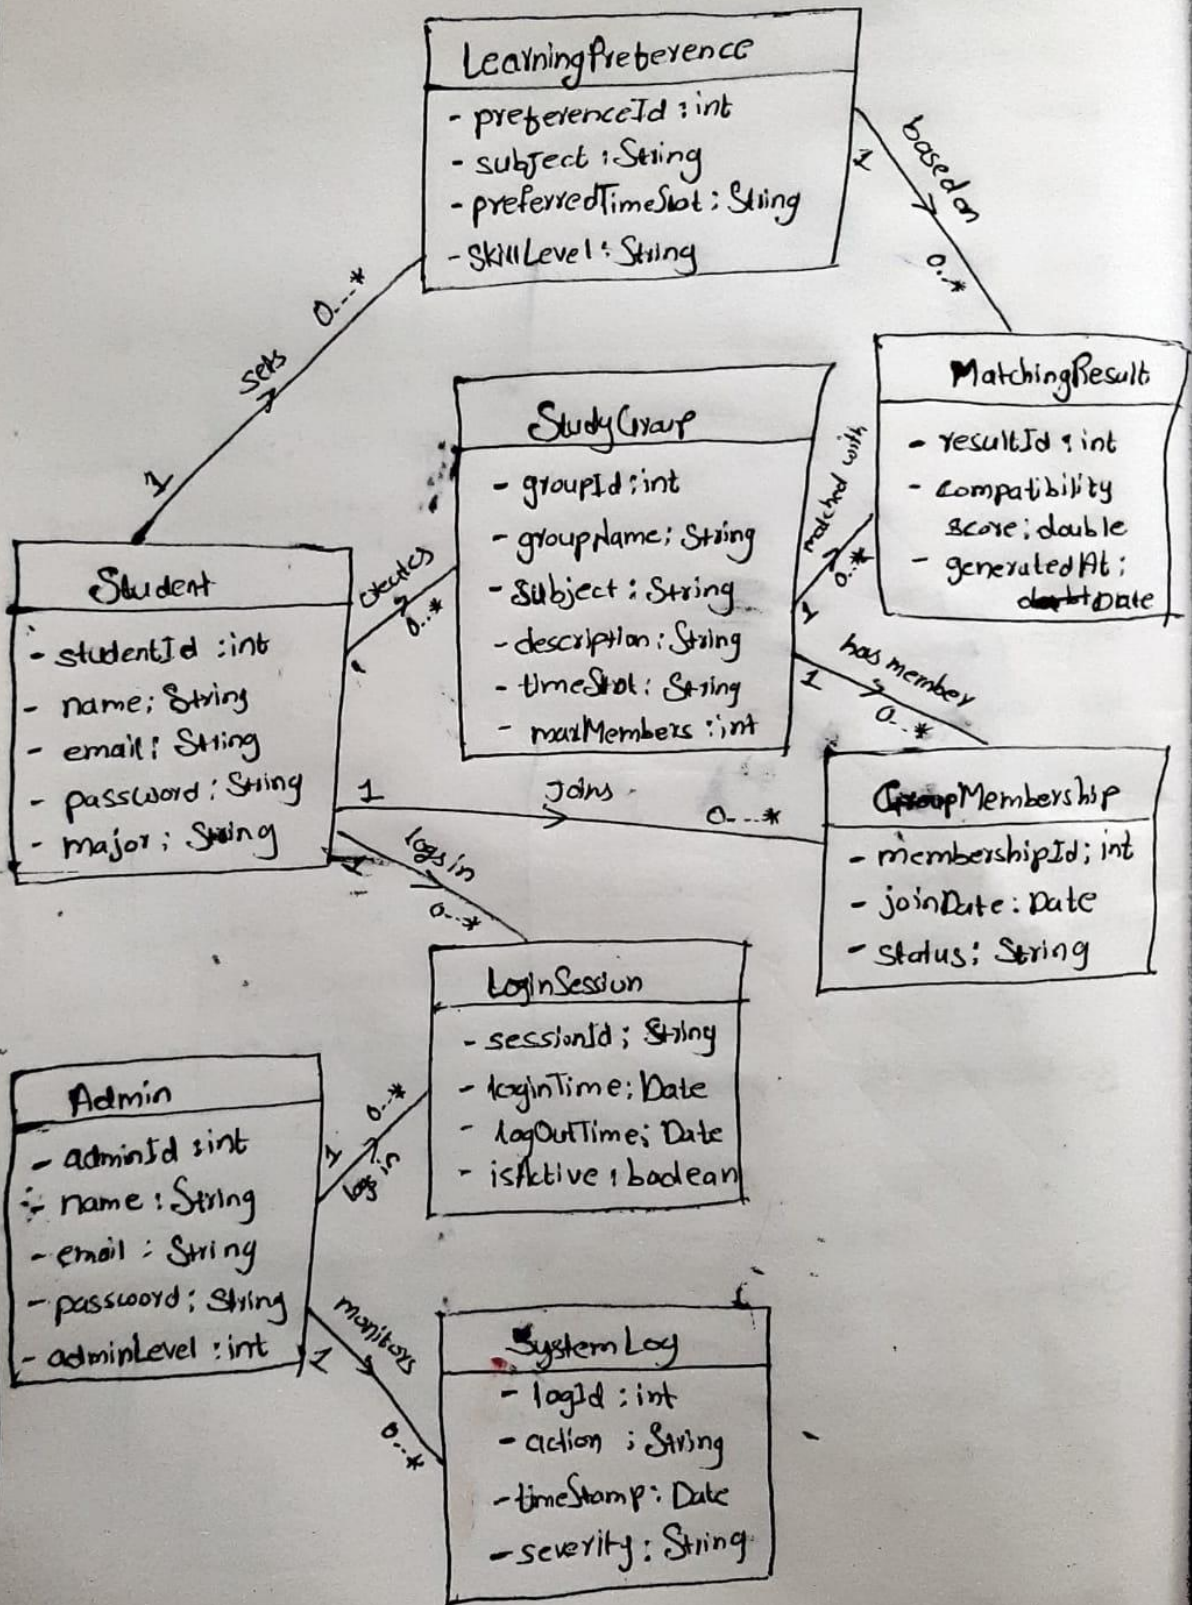 LearningPreference
- preferenceId : int
- subject : String
- preferredTimeSlot : String
- SkillLevel : String
1
based on
0..*
0...*
sets
1
MatchingResult
- resultId : int
- compatibility
score : double
- generatedAt :
Date
StudyGroup
- groupId : int
- groupName : String
- Subject : String
- description : String
- timeSlot : String
- maxMembers : int
matched with
0..*
1
creates
0..*
1
has member
0...*
Student
- studentId : int
- name : String
- email : String
- password : String
- major : String
1
Joins
0...*
GroupMembership
- membershipId : int
- joinDate : Date
- status : String
1
logs in
0...*
LoginSession
- sessionId : String
- loginTime : Date
- logOutTime : Date
- isActive : boolean
Admin
- adminId : int
- name : String
- email : String
- password : String
- adminLevel : int
1
0..*
logs in
1
monitors
0...*
SystemLog
- logId : int
- action : String
- timeStamp : Date
- severity : String